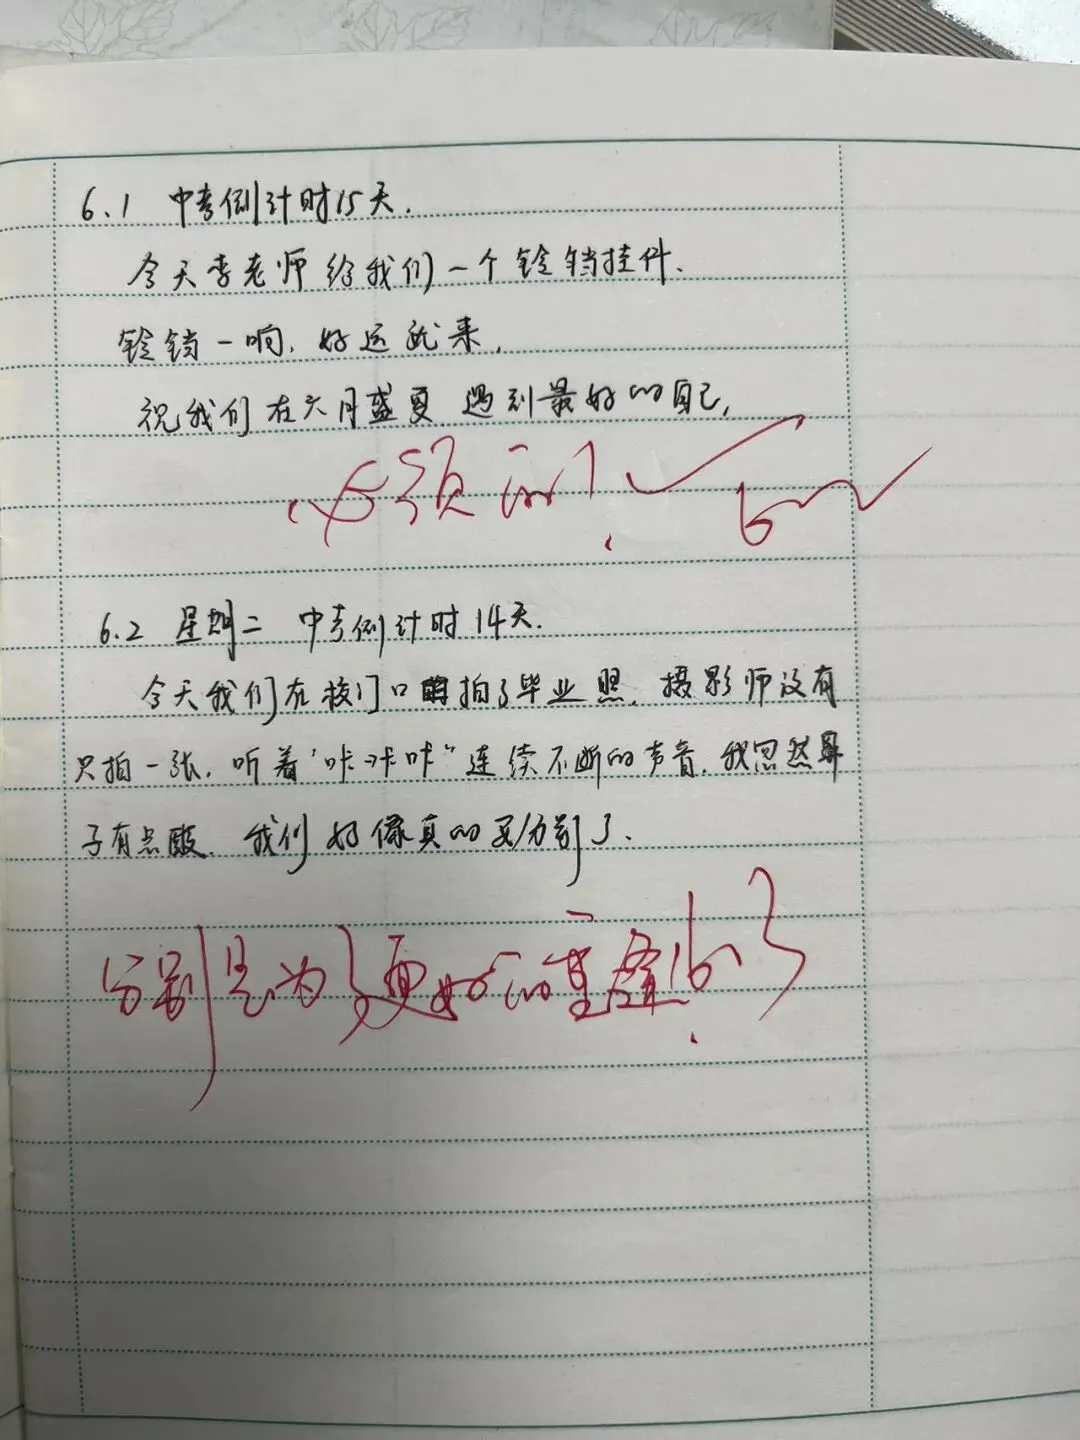 6.1 中考倒计时15天.
今天李老师给我们一个铃铛挂件.
铃铛一响,好运就来,
祝我们在六月盛夏,遇到最好的自己,
必须的!
6.2 星期二 中考倒计时14天.
今天我们在校门口拍了毕业照.摄影师没有
只拍一张.听着"咔咔咔"连续不断的声音.我忽然鼻
子有点酸.我们好像真的要分别了.
分别是为了更好的重逢!6.3